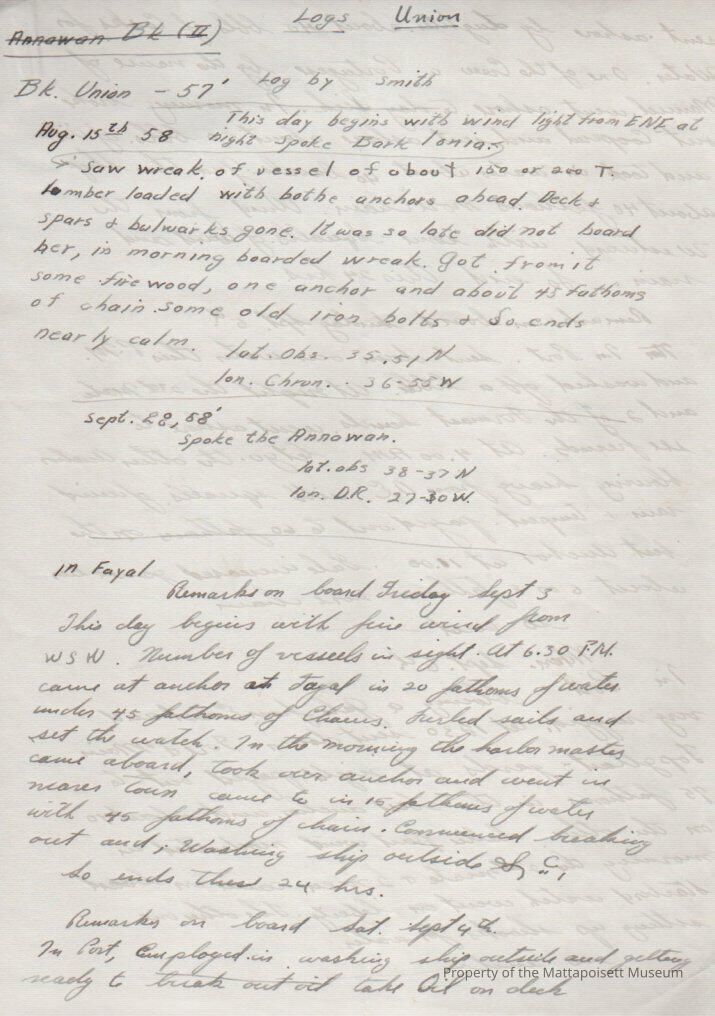 Logs Union
Annowan Bk (II)
Bk. Union - 57' Log by Smith
This day begins with wind light from ENE at
Aug. 15th 58 night spoke Bark Ionia.
Saw wreak of vessel of about 150 or 200 T.
lumber loaded with bothe anchors ahead. Deck &
spars & bulwarks gone. It was so late did not board
her, in morning boarded wreak. Got from it
some firewood, one anchor and about 45 fathoms
of chain some old iron bolts & So ends
nearly calm. lat. Obs. 35.51 N
lon. Chron. . 36-55 W
Sept. 28, 58'
Spoke the Annowan.
lat. obs 38-37 N
lon. D.R. 27-30 W.
in Fayal
Remarks on board Friday Sept 3
This day begins with fine wind from
WSW. Number of vessels in sight. At 6.30 P.M.
came at anchor at Fayal in 20 fathoms of water
under 45 fathoms of Chains. Furled sails and
set the watch. In the morning the harbor master
came aboard, took our anchor and went in
nearer town came to in 15 fathoms of water
with 45 fathoms of chain. Commenced breaking
out and, Washing ship outside &c,
So ends these 24 hrs.
Remarks on board Sat. Sept 4th.
In Port, Employed in washing ship outside and getting
ready to break out oil take Oil on deck
Property of the Mattapoisett Museum